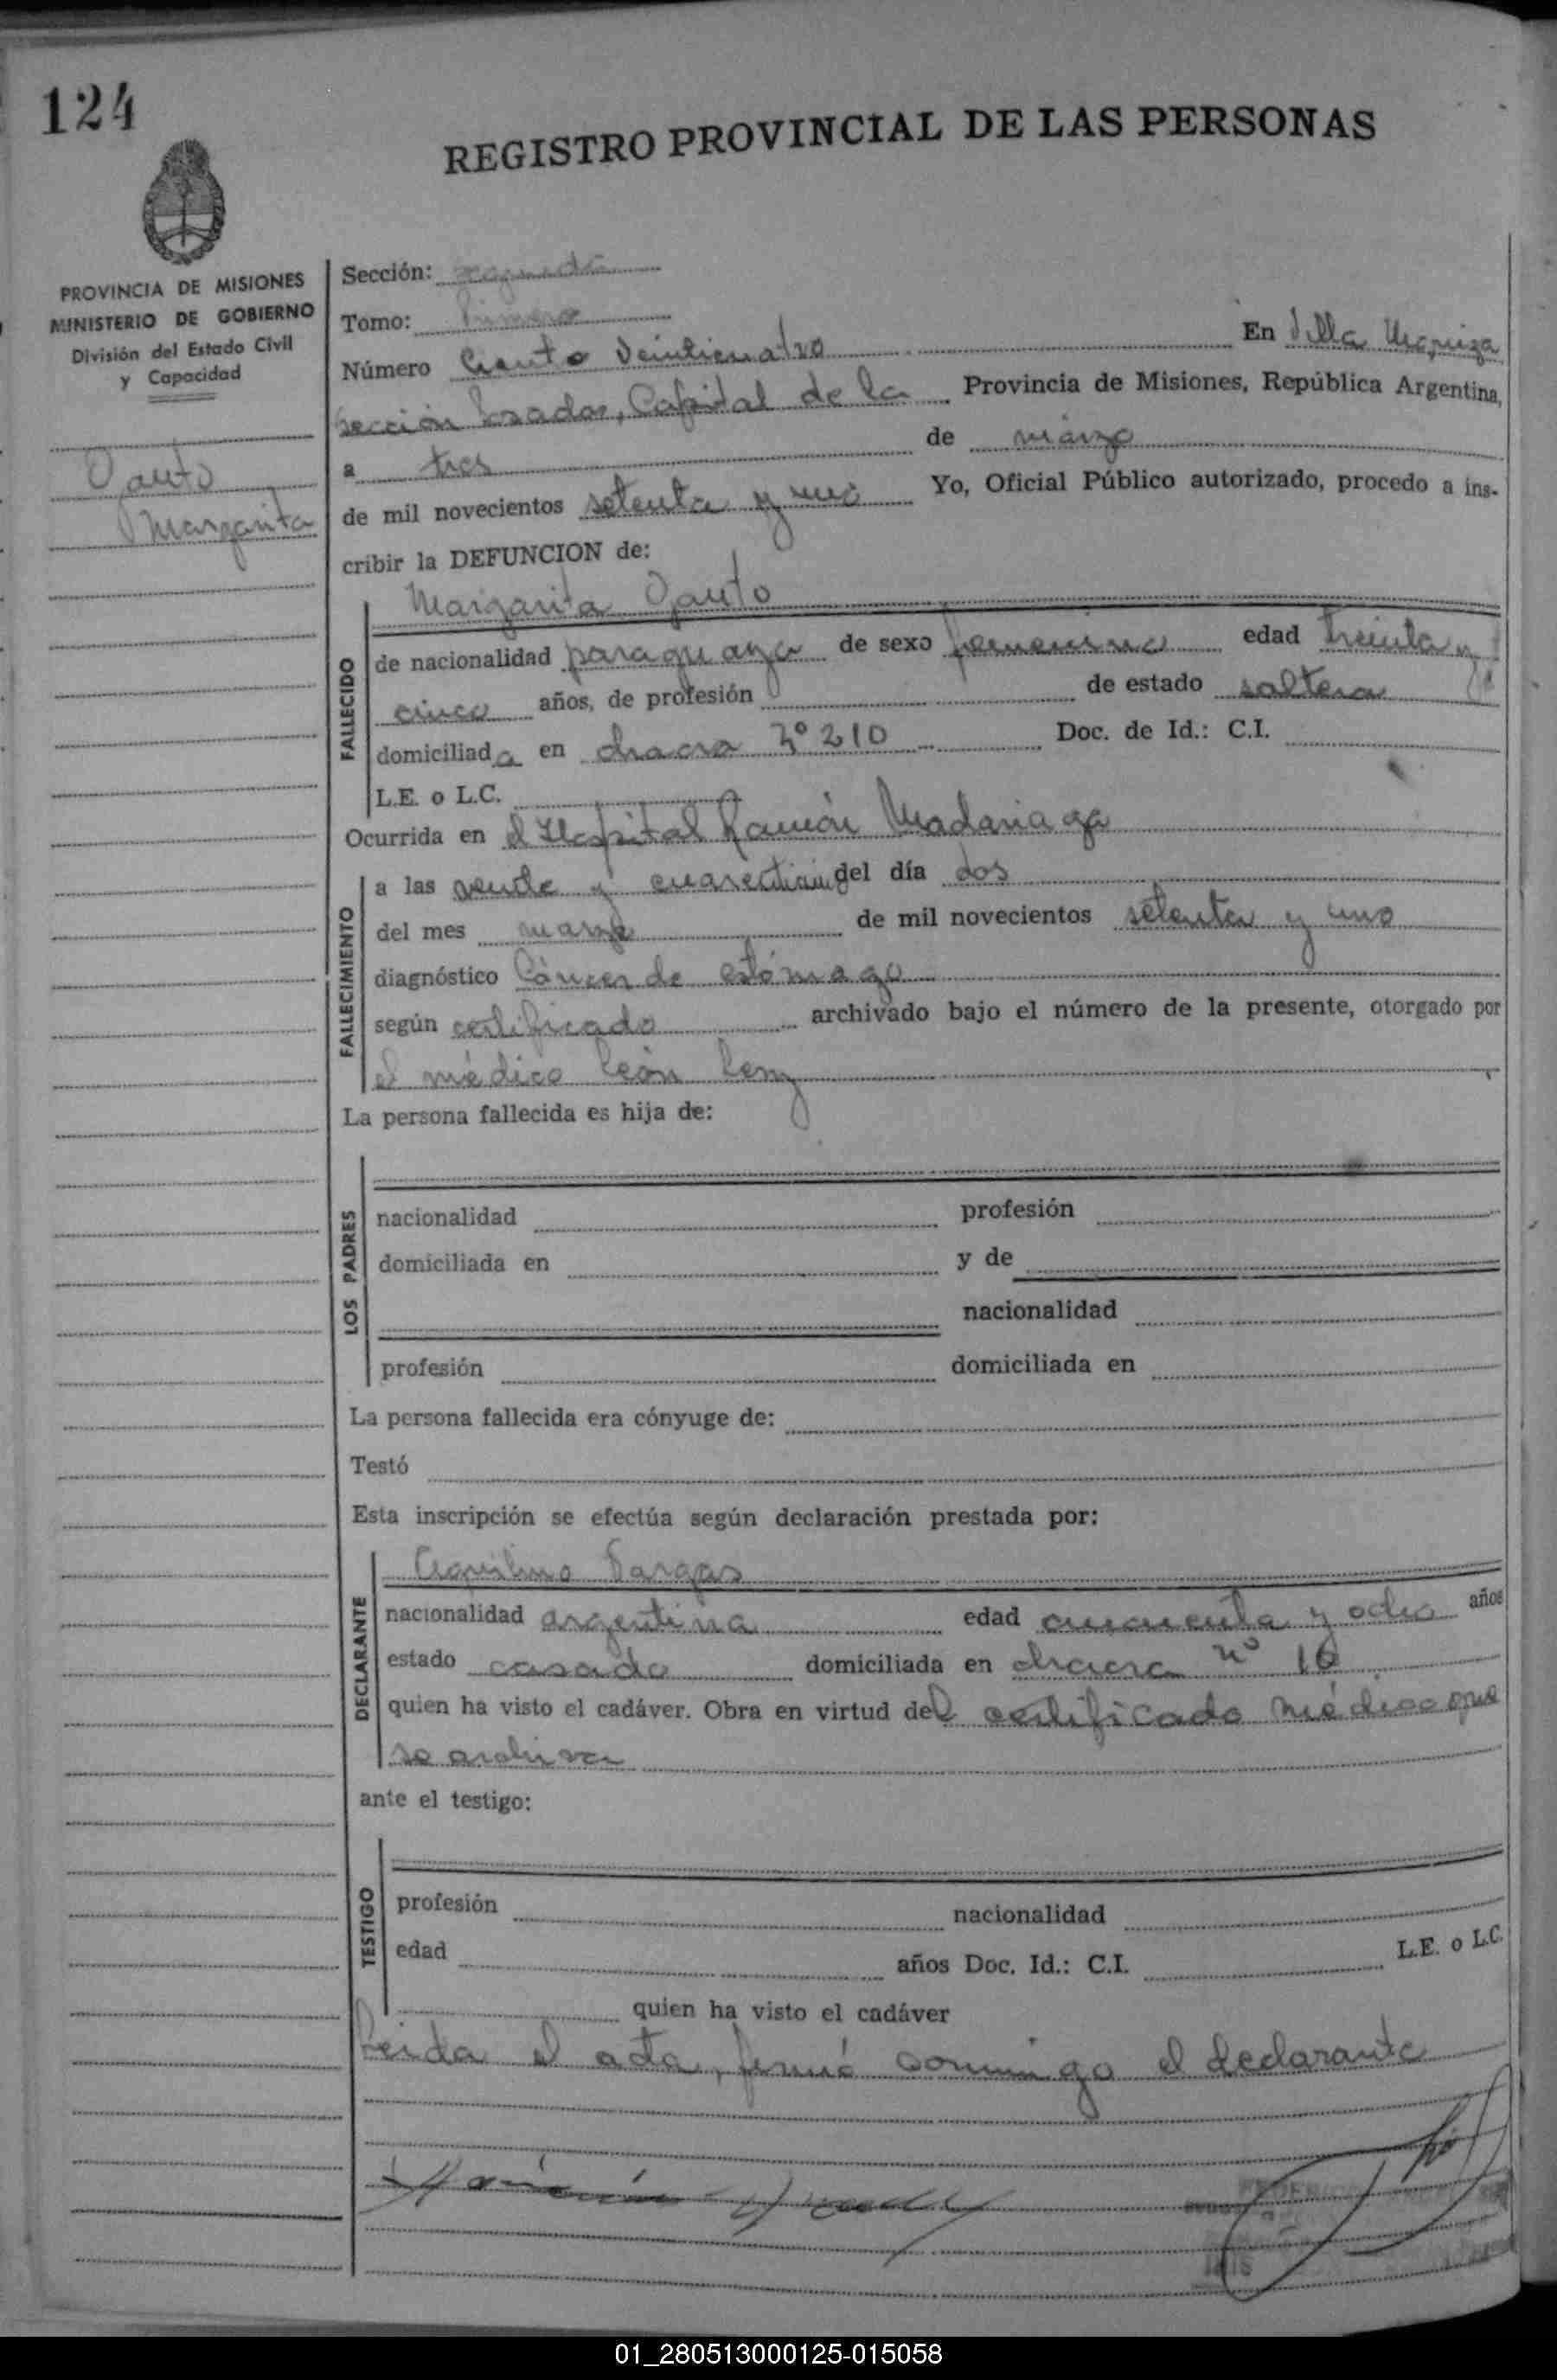 124
REGISTRO PROVINCIAL DE LAS PERSONAS
PROVINCIA DE MISIONES
MINISTERIO DE GOBIERNO
División del Estado Civil
y Capacidad
Gauto
Margarita
Sección: segunda
Tomo: Primero
Número Ciento Veinticuatro En Villa Urquiza
sección Posadas, Capital de la Provincia de Misiones, República Argentina,
a tres de marzo
de mil novecientos setenta y uno Yo, Oficial Público autorizado, procedo a ins-
cribir la DEFUNCION de:
FALLECIDO
Margarita Gauto
de nacionalidad paraguaya de sexo femenino edad treinta y
cinco años, de profesión de estado soltera
domiciliada en chacra Nº 210 Doc. de Id.: C.I.
L.E. o L.C.
Ocurrida en el Hospital Ramón Madariaga
FALLECIMIENTO
a las veinte y del día dos
del mes marzo de mil novecientos setenta y uno
diagnóstico Cáncer de estómago
según certificado archivado bajo el número de la presente, otorgado por
el médico León
La persona fallecida es hija de:
LOS PADRES
nacionalidad profesión
domiciliada en y de
nacionalidad
profesión domiciliada en
La persona fallecida era cónyuge de:
Testó
Esta inscripción se efectúa según declaración prestada por:
DECLARANTE
Aquilino Vargas
nacionalidad argentina edad cincuenta y ocho años
estado casado domiciliada en chacra nº 16
quien ha visto el cadáver. Obra en virtud del certificado médico que
se archiva
ante el testigo:
TESTIGO
profesión nacionalidad
edad años Doc. Id.: C.I. L.E. o L.C.
quien ha visto el cadáver
Leida el acta, firmó conmigo el declarante
01_280513000125-015058